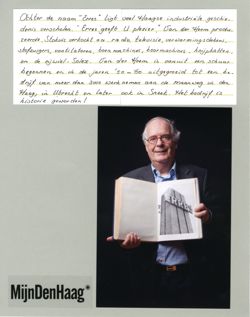 Achter de naam "Erres" ligt veel Haagse industriële geschie-
denis verscholen. "Erres geeft U plezier". Van der Heem produ-
ceerde, Stokvis verkocht o.a. radio, televisie, verwarmingsdekens,
stofzuigers, ventilatoren, boenmachines, boormachines, kookplaten,
en de rijwiel-Solex. Van der Heem is vanuit een schuur
begonnen en in de jaren '50-60 uitgegroeid tot een be-
drijf van meer dan 3000 werknemers aan de Maanweg in den
Haag, in Utrecht en later ook in Sneek. Het bedrijf is
historie geworden!
MijnDenHaag*